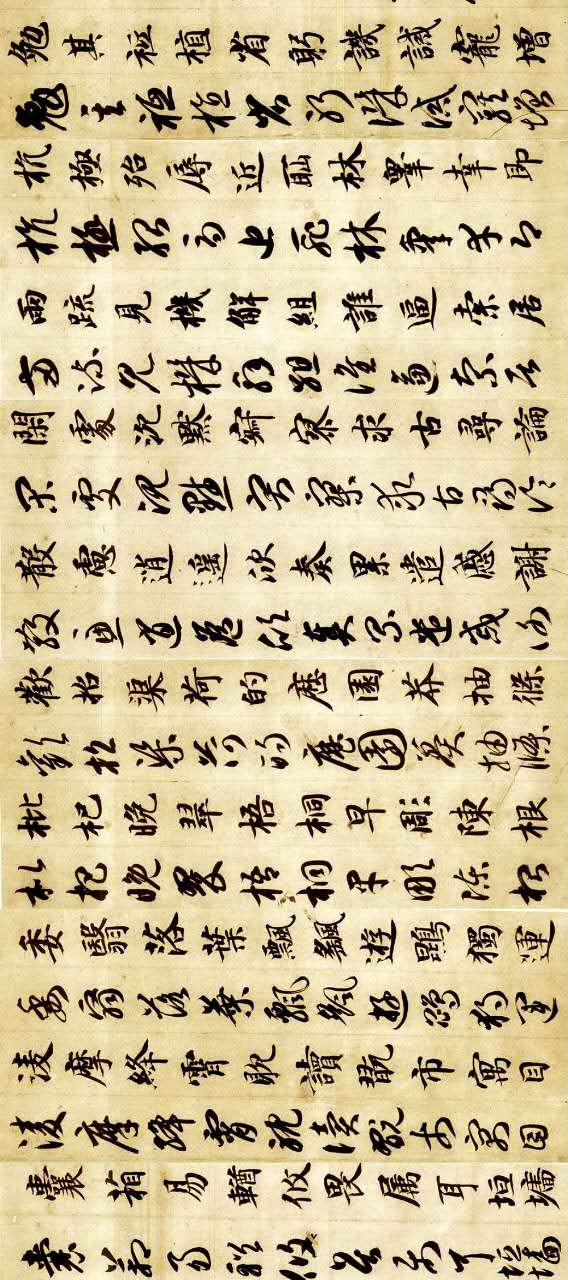 勉其祗植省躬譏誡寵增
勉其祗植省躬譏誡寵增
抗極殆辱近耻林皋幸即
抗極殆辱近耻林皋幸即
兩疏見機解組誰逼索居
兩疏見機解組誰逼索居
閑處沉默寂寥求古尋論
閑處沉默寂寥求古尋論
散慮逍遥欣奏累遣慼謝
散慮逍遥欣奏累遣慼謝
歡招渠荷的歷園莽抽條
歡招渠荷的歷園莽抽條
枇杷晚翠梧桐早彫陳根
枇杷晚翠梧桐早彫陳根
委翳落葉飄颻遊鵾獨運
委翳落葉飄颻遊鵾獨運
凌摩絳霄耽讀翫市寓目
凌摩絳霄耽讀翫市寓目
囊箱易輶攸畏属耳垣墻
囊箱易輶攸畏属耳垣墻